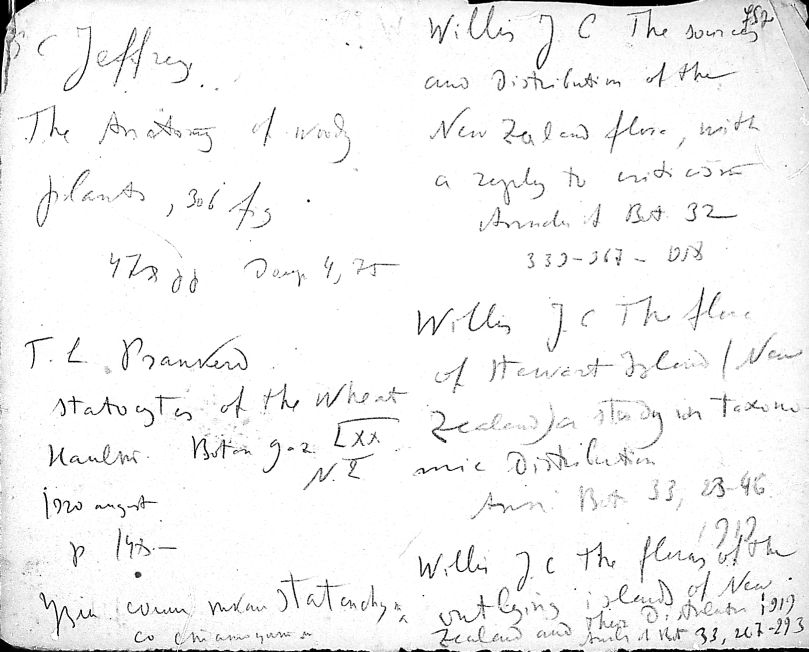 C Jeffrey
The Anatomy of woody
plants, 306 fig
T. L Prankerd
statocytes of the Wheat
Haulm. Botan gaz LXX
N. 2
1920 august
p 148 –
Willis J C The sources
and Distribution of the
New Zealand flora, with
a reply to criticism
Annals of Bot 32
339-367 - 1918
Willis J. C The flora
of Stewart Island (New
Zealand) a study in taxono
mic Distribution
Ann Bot 33, 23-46
1919
Willis J C The floras of the
outlying islands of New
Zealand and their Distribution 1919
Annals of Bot 33, 267-293
757